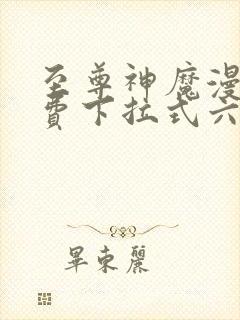 至尊神魔漫
費下拉式六
畢東麗